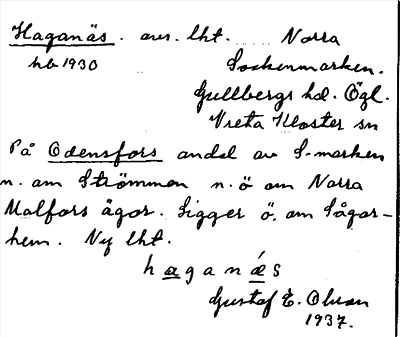 Haganäs. avs. lht. Norra
hb 1930 Sockenmarken.
Gullbergs hd. Ögl.
Vreta Kloster sn
På Odensfors andel av S-marken
n. om Strömmen n. ö om Norra
Malfors ägor. Ligger ö. om Sågar-
hem. Ny lht.
haganǽs
Gustaf E. Olsson
1937.